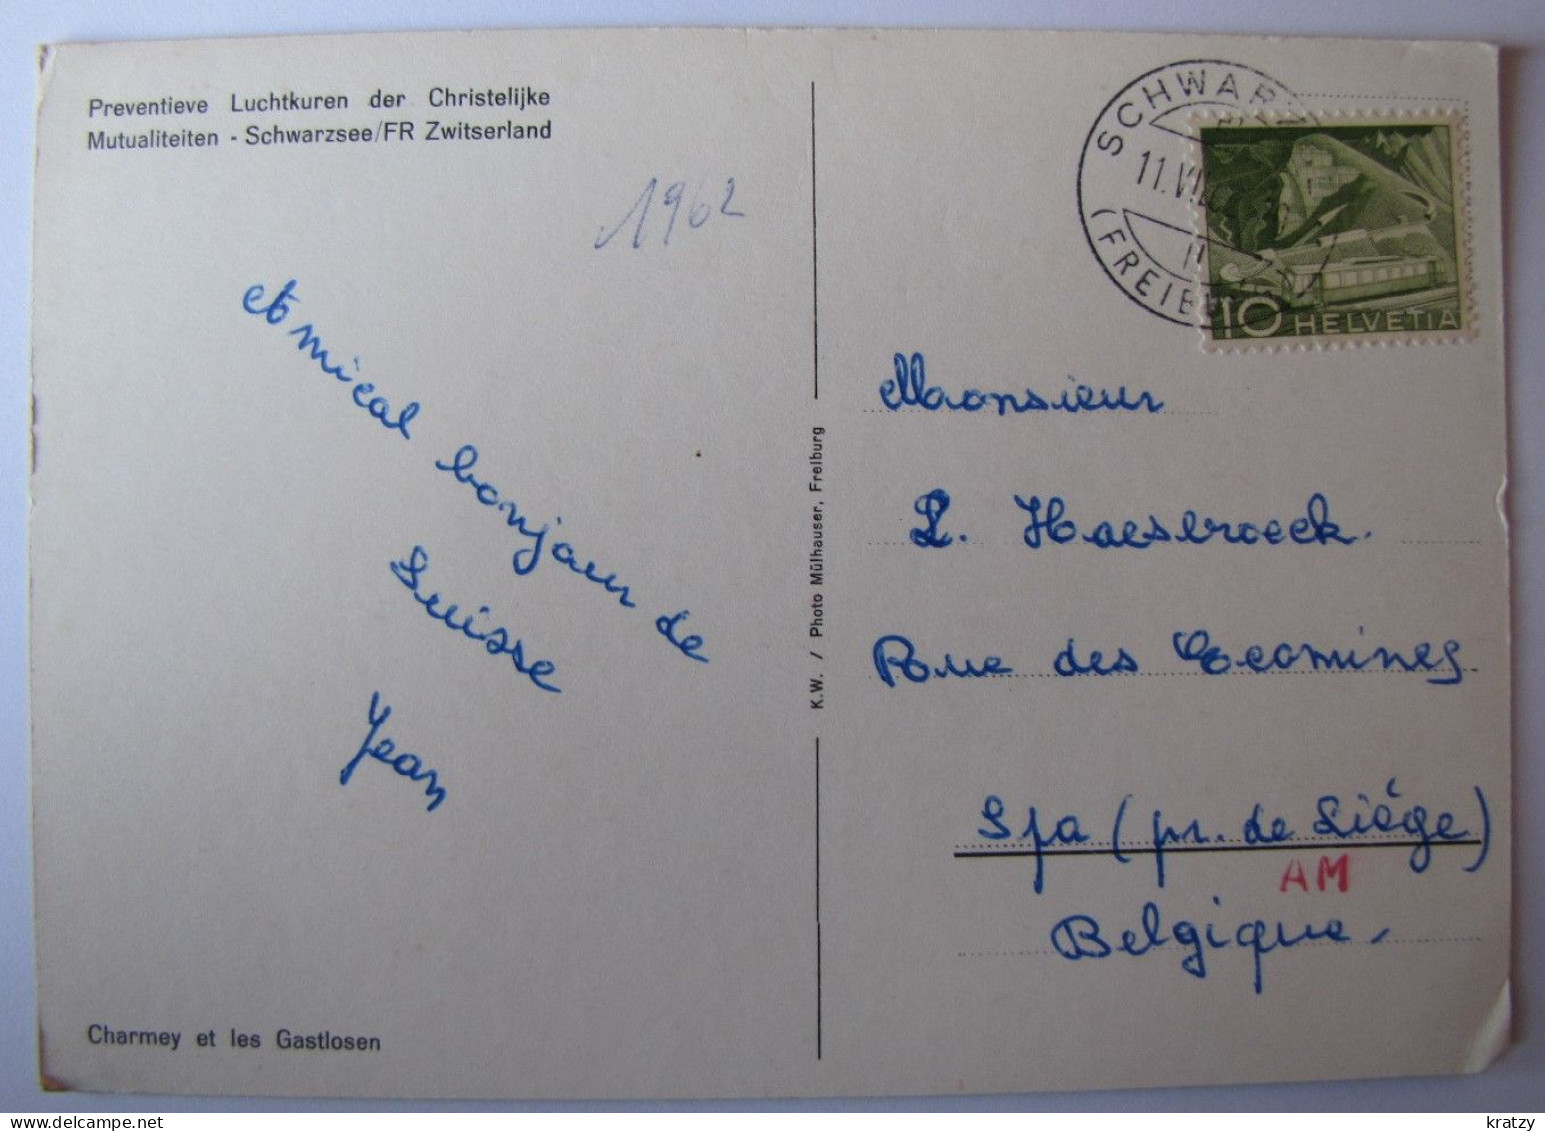 Preventieve Luchtkuren der Christelijke
Mutualiteiten - Schwarzsee/FR Zwitserland
1962
Amical bonjour de
Suisse
Jean
Charmey et les Gastlosen
K.W. / Photo Mülhauser, Freiburg
SCHWARZ
11.VII
(FREIBU
10 HELVETIA
Monsieur
L. Haesbroeck.
Rue des
Spa (pr. de Liége)
AM
Belgique.
kratzy